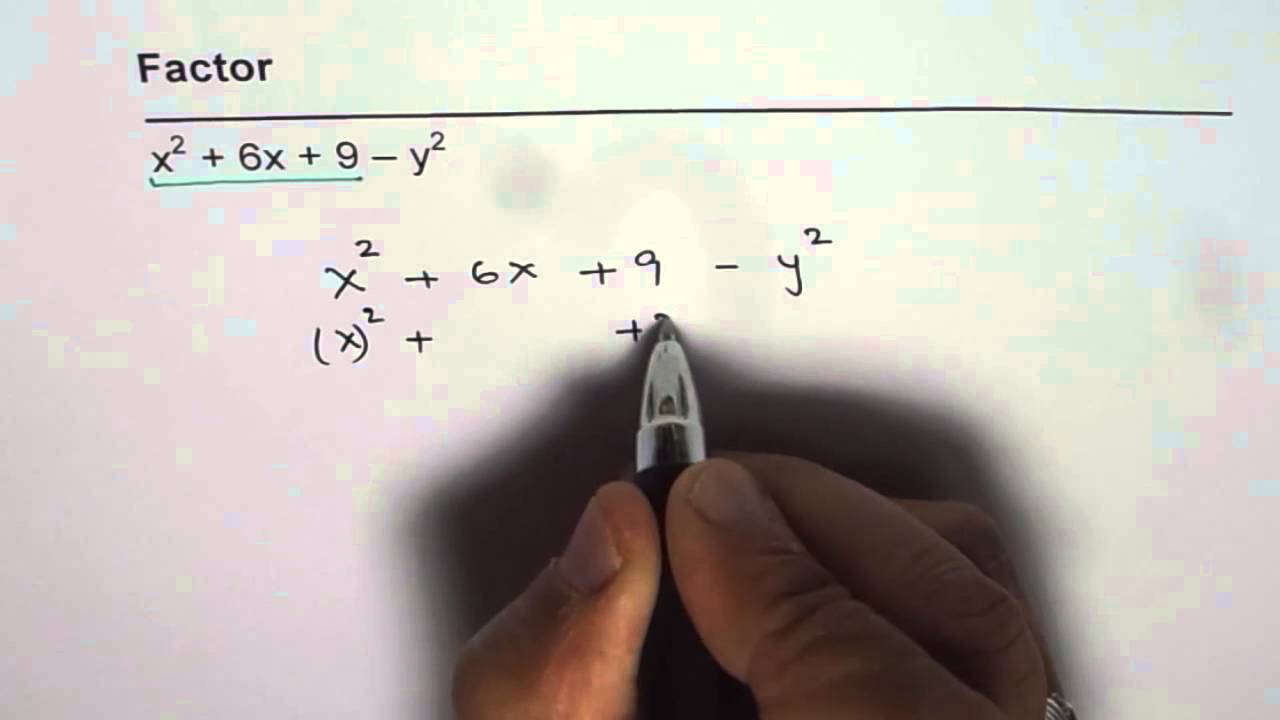 Factor
x² + 6x + 9 – y²
x² + 6x + 9 - y²
(x)² + +